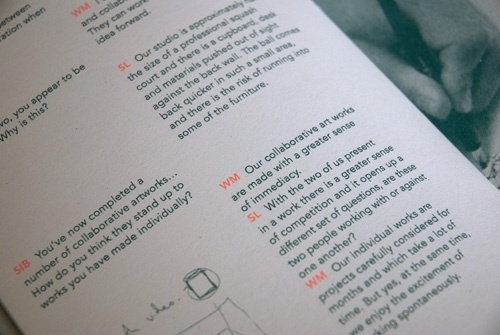 between
ation when
vo, you appear to be
Why is this?
SIB You've now completed a
number of collaborative artworks...
How do you think they stand up to
works you have made individually?
WM
and collab
They can wor
idea forward.
SL Our studio is approximately
the size of a professional squash
court and there is a cupboard, desk
and materials pushed out of sight
against the back wall. The ball comes
back quicker in such a small area,
and there is the risk of running into
some of the furniture.
WM Our collaborative art works
are made with a greater sense
of immediacy.
SL With the two of us present
in a work there is a greater sense
of competition and it opens up a
different set of questions, are these
two people working with or against
one another?
WM Our individual works are
projects carefully considered for
months and which take a lot of
time. But yes, at the same time,
we enjoy the excitement of
king spontaneously.